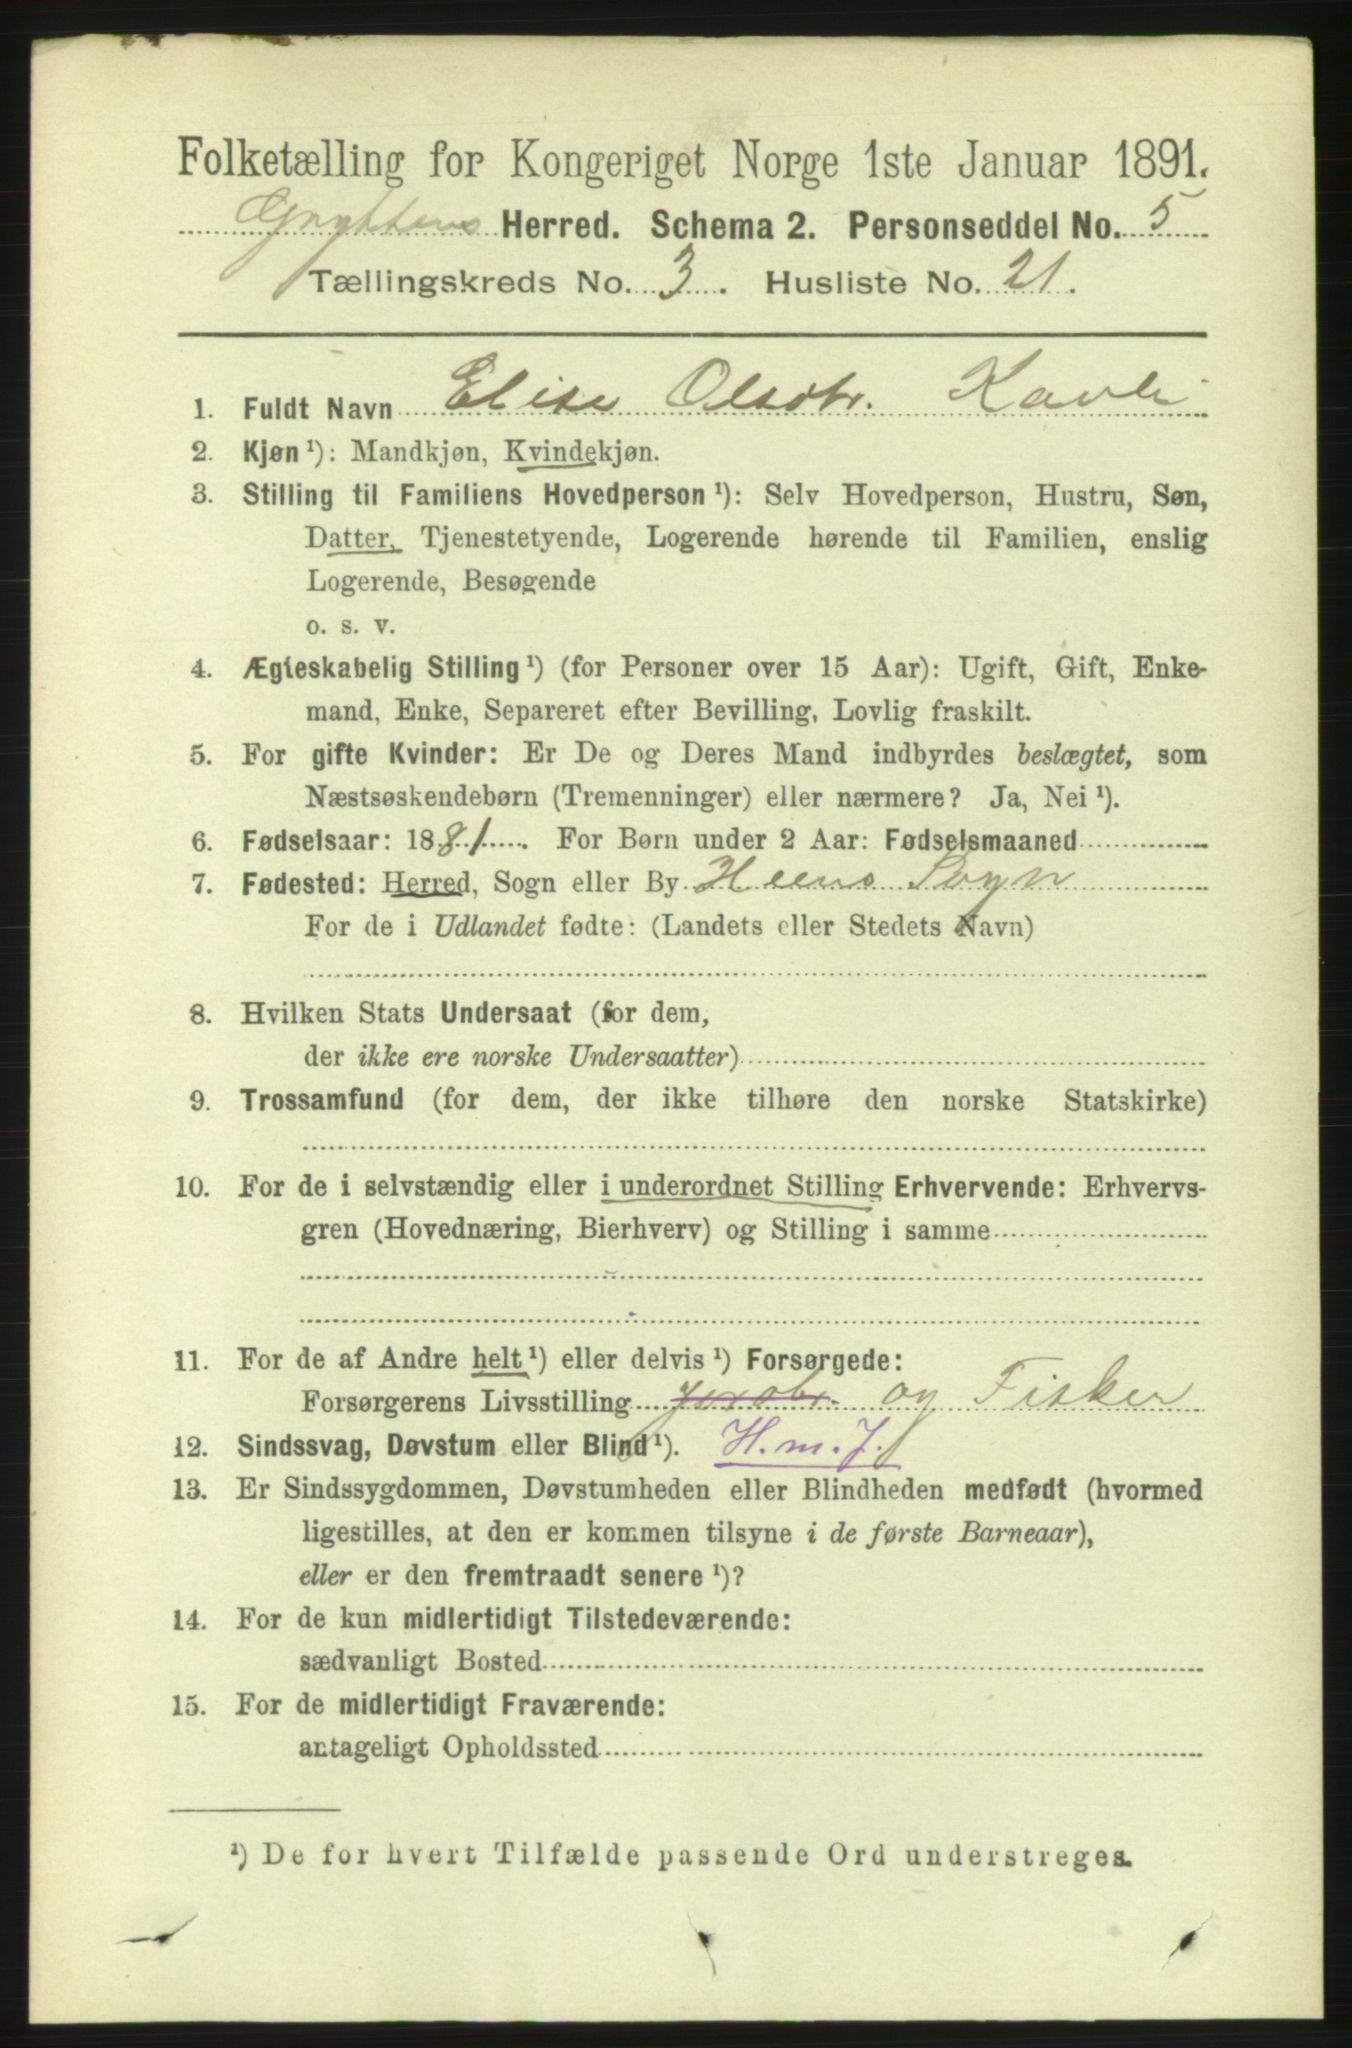 Folketælling for Kongeriget Norge 1ste Januar 1891.
Gryttens Herred. Schema 2. Personseddel No. 5
Tællingskreds No. 3. Husliste No. 21.
1. Fuldt Navn Elise Olsdtr. Kavli
2. Kjøn ¹): Mandkjøn, Kvindekjøn.
3. Stilling til Familiens Hovedperson ¹): Selv Hovedperson, Hustru, Søn,
Datter, Tjenestetyende, Logerende hørende til Familien, enslig
Logerende, Besøgende
o. s. v.
4. Ægteskabelig Stilling ¹) (for Personer over 15 Aar): Ugift, Gift, Enke-
mand, Enke, Separeret efter Bevilling, Lovlig fraskilt.
5. For gifte Kvinder: Er De og Deres Mand indbyrdes beslægtet, som
Næstsøskendebørn (Tremenninger) eller nærmere? Ja, Nei ¹).
6. Fødselsaar: 1881. For Børn under 2 Aar: Fødselsmaaned
7. Fødested: Herred, Sogn eller By Heens Sogn
For de i Udlandet fødte: (Landets eller Stedets Navn)
8. Hvilken Stats Undersaat (for dem,
der ikke ere norske Undersaatter)
9. Trossamfund (for dem, der ikke tilhøre den norske Statskirke)
10. For de i selvstændig eller i underordnet Stilling Erhvervende: Erhvervs-
gren (Hovednæring, Bierhverv) og Stilling i samme
11. For de af Andre helt ¹) eller delvis ¹) Forsørgede:
Forsørgerens Livsstilling og Fisker
12. Sindssvag, Døvstum eller Blind ¹). H. m. J.
13. Er Sindssygdommen, Døvstumheden eller Blindheden medfødt (hvormed
ligestilles, at den er kommen tilsyne i de første Barneaar),
eller er den fremtraadt senere ¹)?
14. For de kun midlertidigt Tilstedeværende:
sædvanligt Bosted
15. For de midlertidigt Fraværende:
antageligt Opholdssted
¹) De for hvert Tilfælde passende Ord understreges.